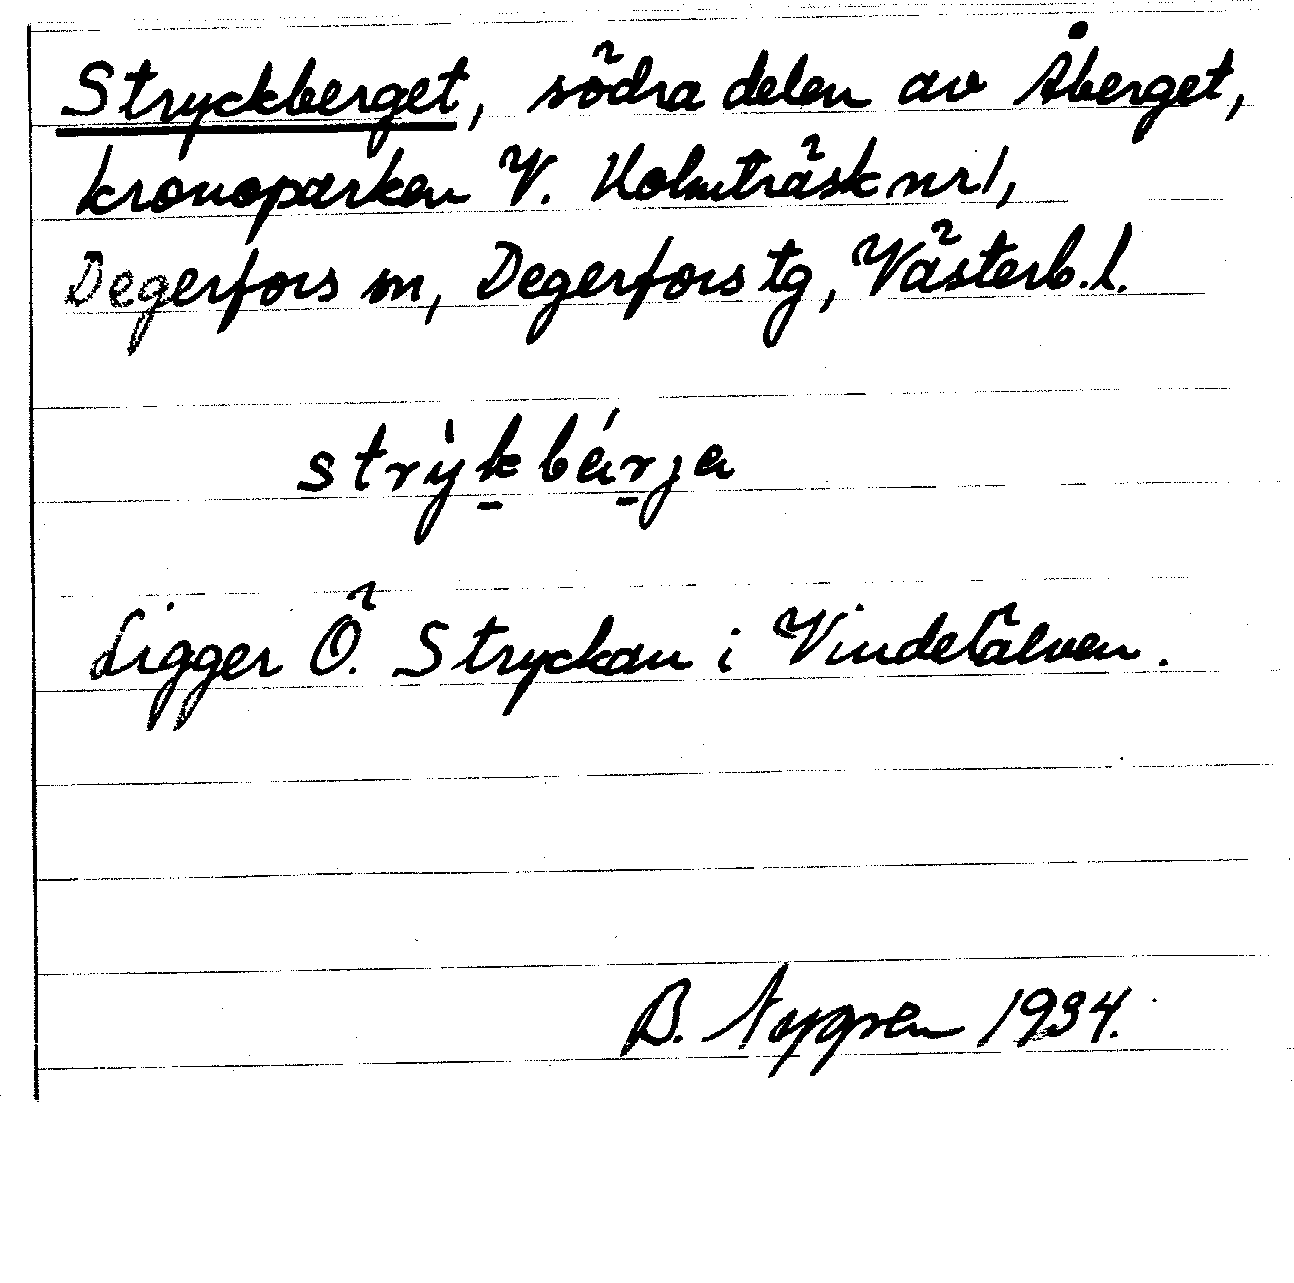 Stryckberget, södra delen av Åberget,
kronoparken V. Holmträsk nr 1,
Degerfors sn, Degerfors tg, Västerb. l.
strỳk̠bár̠ja
Ligger Ö. Stryckan i Vindelälven.
B. Nygren 1934.